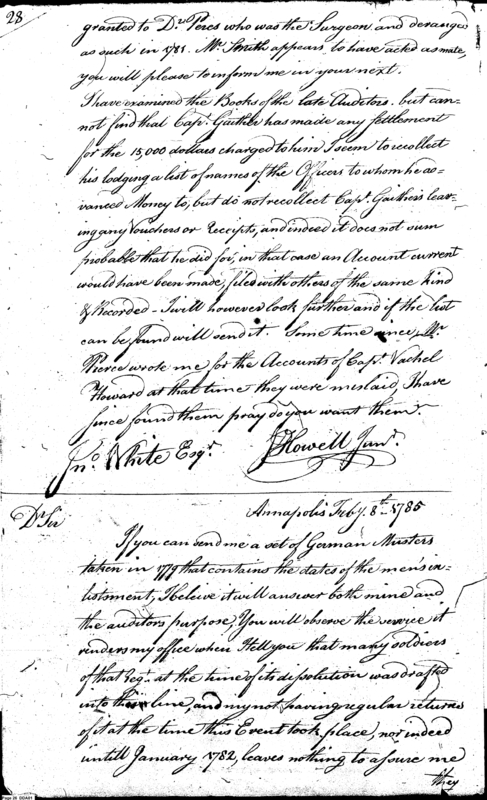 28
granted to Dr. Peres who was the Surgeon and deranged
as such in 1781. Mr. Smith appears to have acted as mate,
you will please to inform me in your next.
I have examined the Books of the late Auditors. but can-
not find that Capt. Gaither has made any settlement
for the 15,000 dollars charged to him I seem to recollect
his lodging a list of names of the Officers to whom he ad-
vanced Money to, but do not recollect Capt. Gaithers leav-
ing any Vouchers or Receipts, and indeed it does not seem
probable that he did for, in that case an Account current
would have been made, filed with others of the same kind
& Recorded - I will however look further and if the list
can be found will send it. Some time since, Mr.
Pierce wrote me for the Accounts of Capt. Vachel
Howard at that time they were mislaid, I have
since found them pray do you want them.
Jno. White Esqr. J Howell Junr.
Annapolis Feby. 8th. 1785
Dr. Sir
If you can send me a set of German Musters
taken in 1779 that contains the dates of the men's in-
listment, I beleive it will answer both mine and
the auditors purpose, You will observe the service it
renders my office when I tell you that many soldiers
of that Regt. at the time of its dissolution was drafted
into line, and my not having regular returns
of it at the time this Event took place, nor indeed
untill January 1782, leaves nothing to assure me
they
Page 28 DDA01